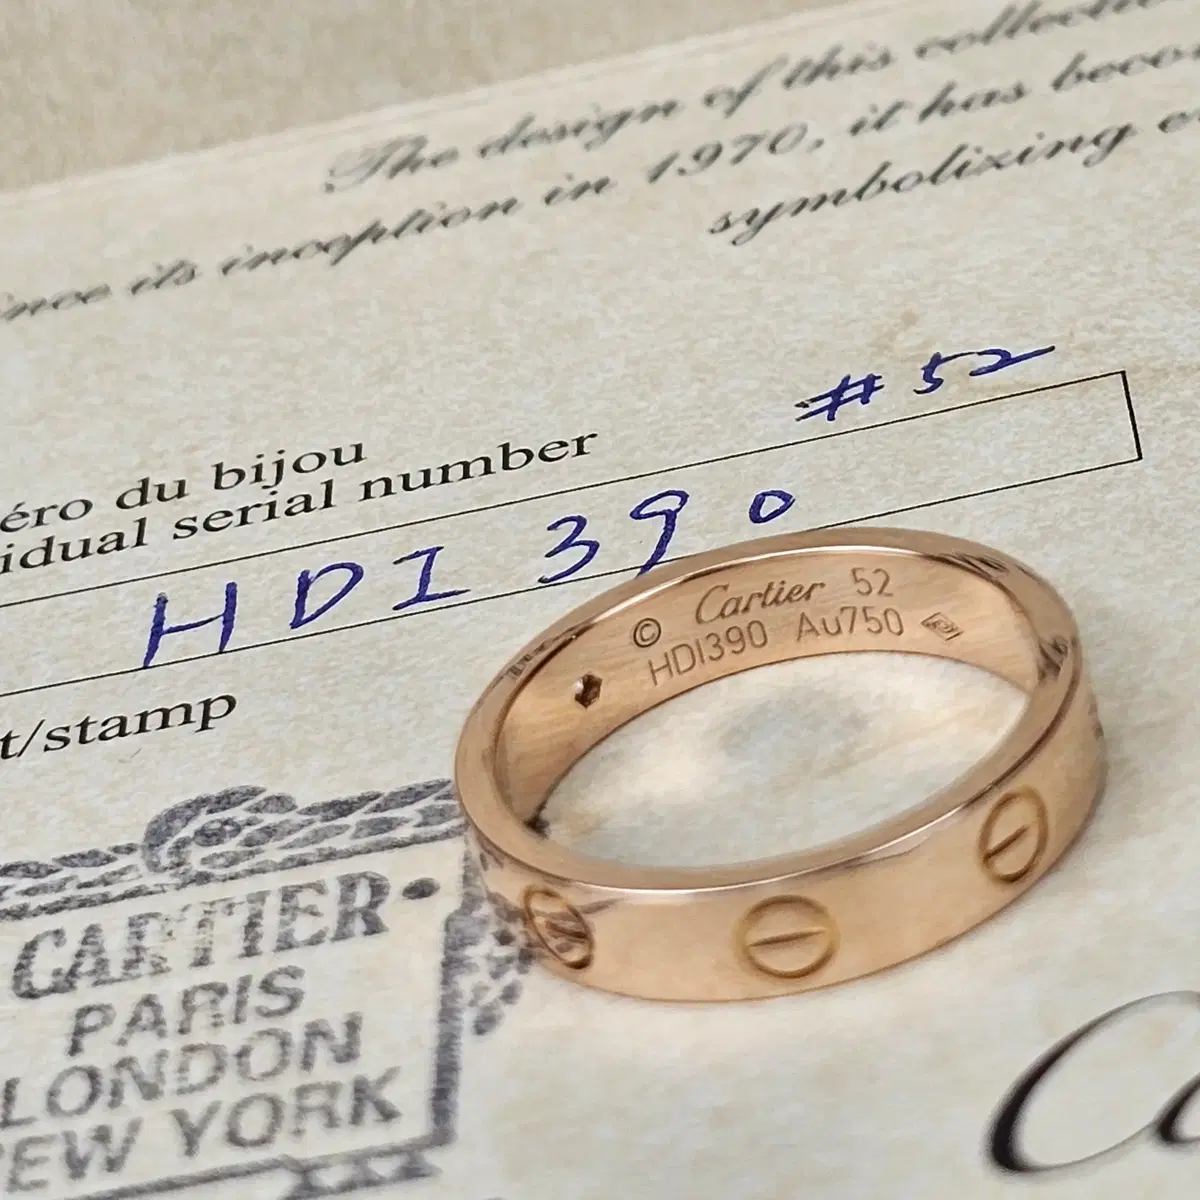 The design of this collection
since its inception in 1970, it has beco
symbolizing e
# 52
éro du bijou
idual serial number
HDI390
© Cartier 52
HDI390 Au750
t/stamp
CARTIER
PARIS
LONDON
EW YORK
Ca